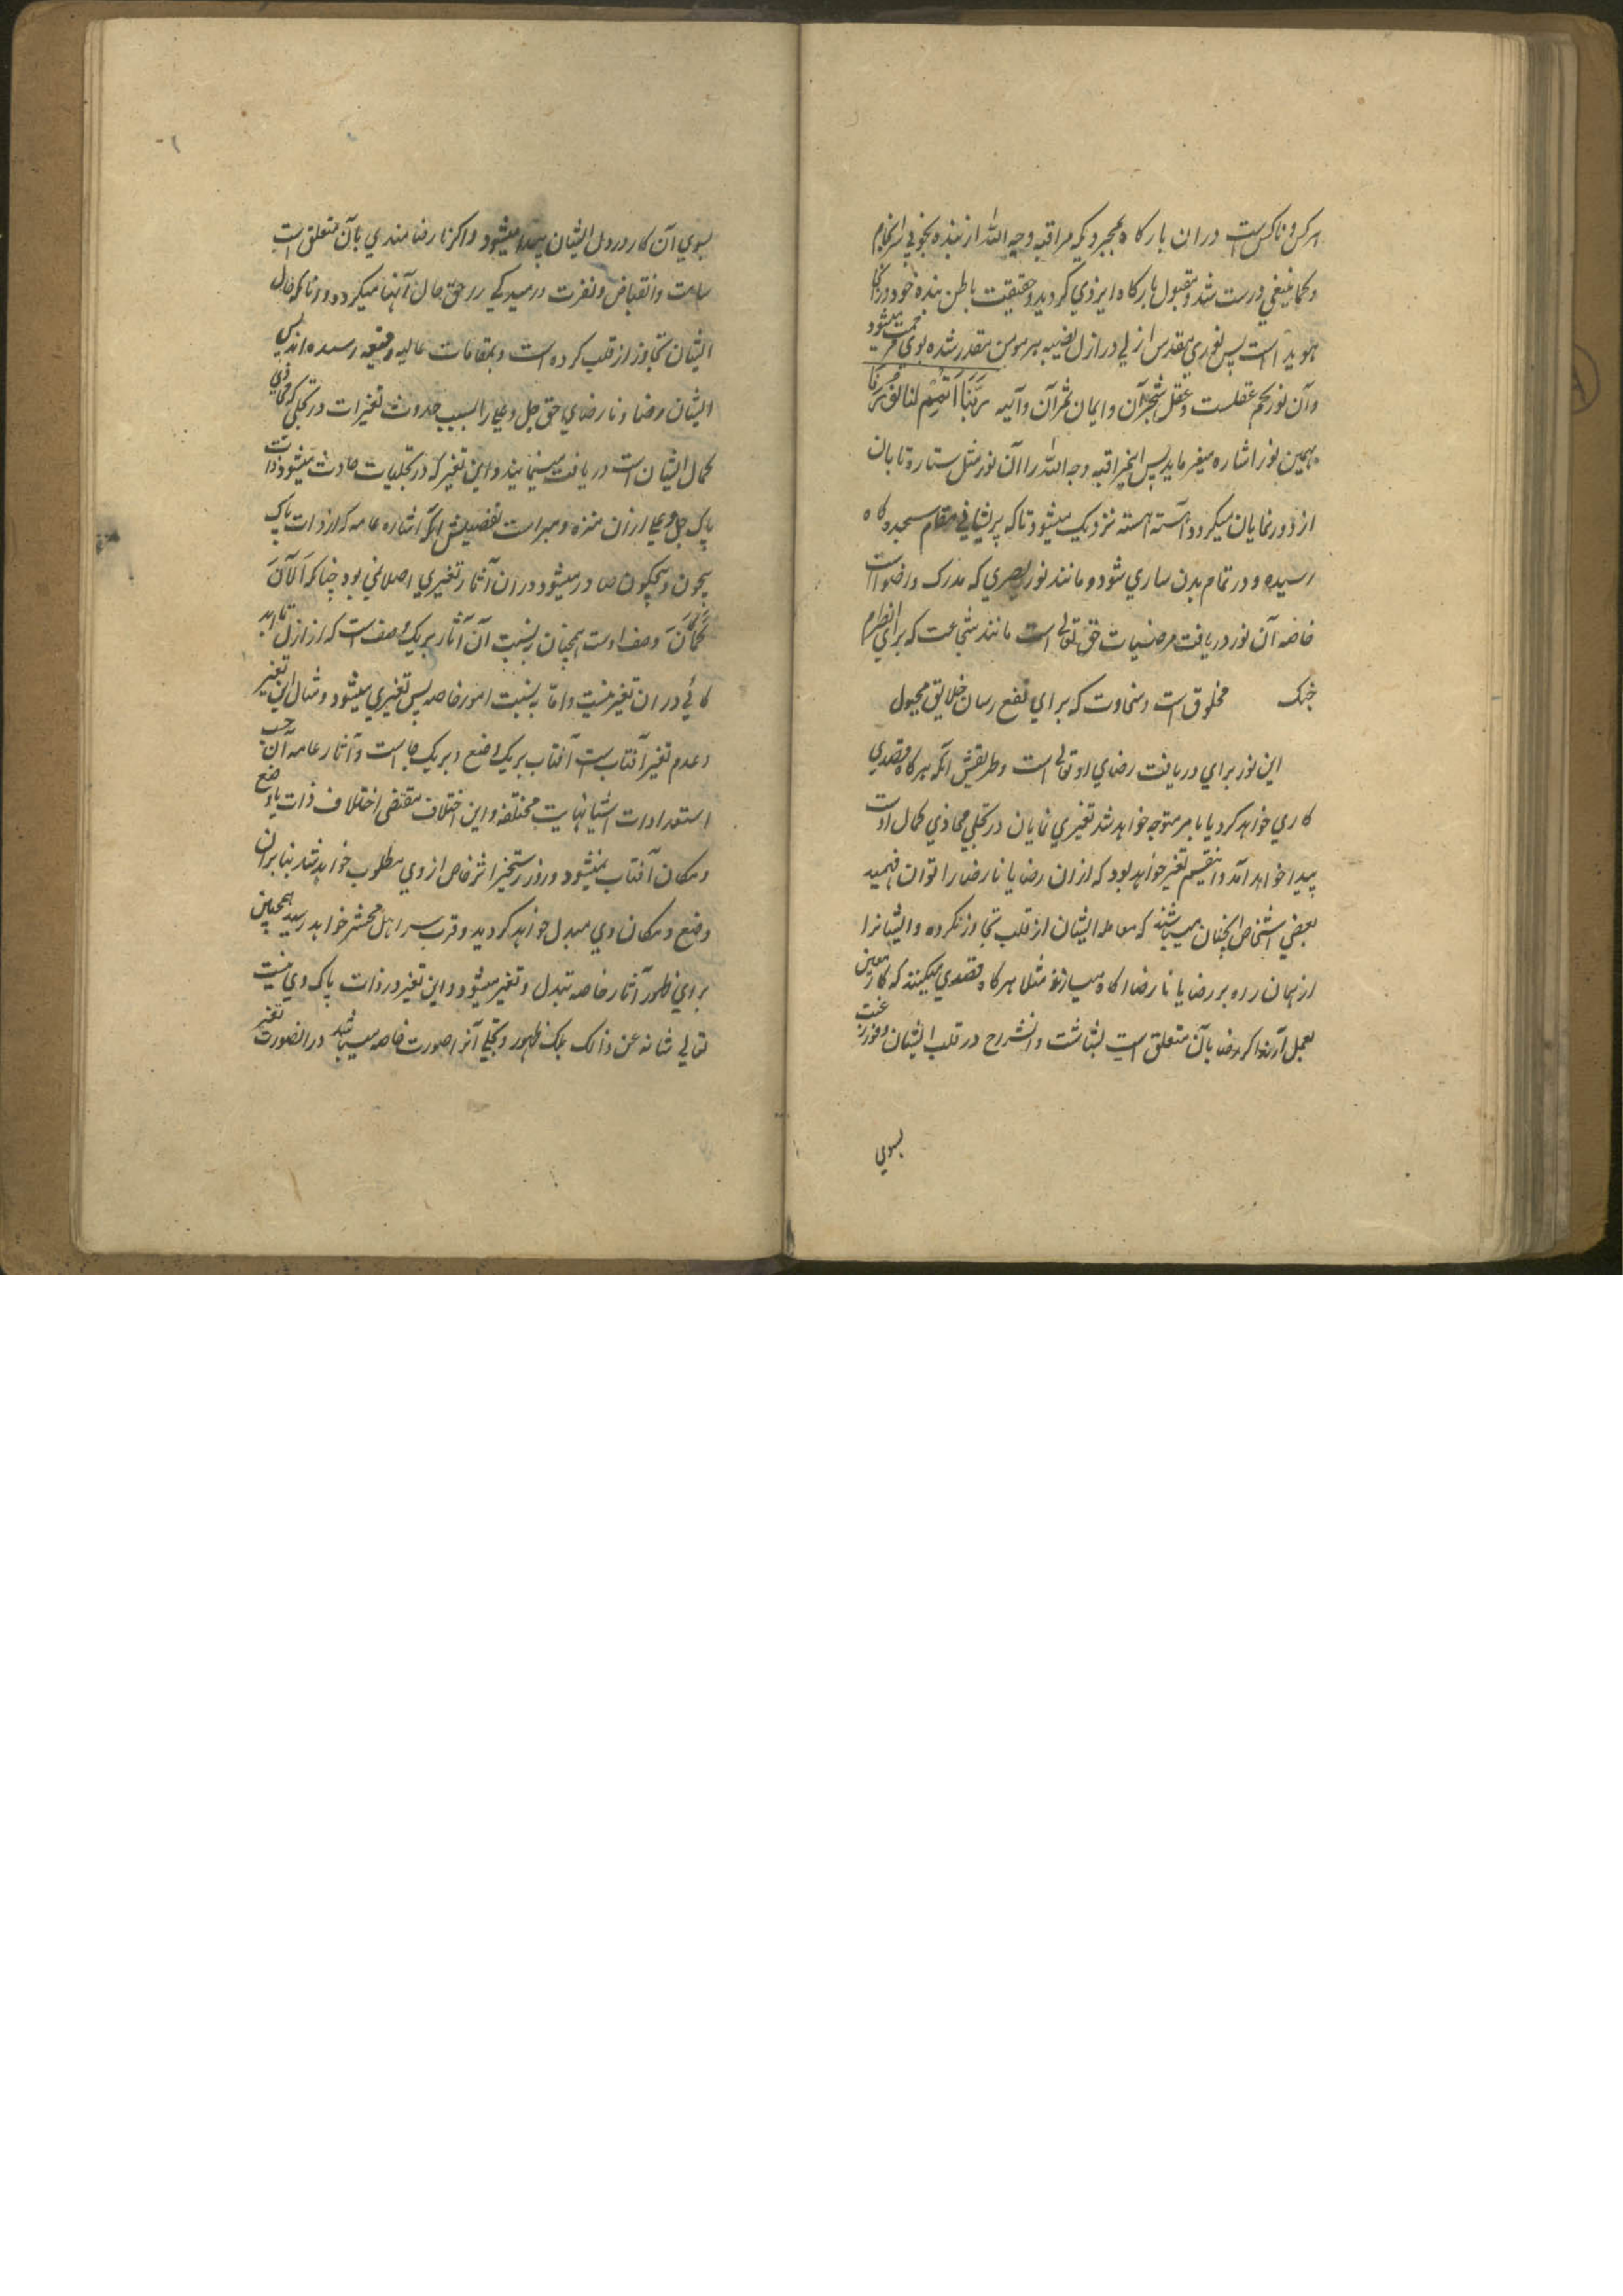 هر کس و ناکس است دران بارگاه بمجردیکه مراقبه وجه الله از بنده بخوبی سرانجام
و کما ینبغی درست شد و مقبول بارگاه ایزدی گردید و حقیقت باطن بنده خود در انجا
هویدا است پس نوری مقدس ازلی در ازل نصیبه هر مومن مقدر شده بوی مرحمت میشود
و آن نور تخم عقلست و عقل شجر آن و ایمان ثمر آن و آیه رَبَّنَا اَتْمِمْ لَنَا نُورَنَا
بهمین نور اشاره میفرماید پس مراقبه وجه الله را آن نور مثل ستاره تابان
از دور نمایان میگردد و آهسته آهسته نزدیک میشود تا که بر پیشانی مقام سجده گاه
رسیده و در تمام بدن ساری شود و مانند نور بصری که مدرک و اضواست
خاصه آن نور دریافت مرضیات حق تعالی است مانند شجاعت که برای
جنگ مخلوق است و سخاوت که برای نفع رسان خلایق مجبول
این نور برای دریافت رضای او تعالی است و طریقش آنکه هرگاه قصدی
کاری خواهد کرد یا بامر متوجه خواهد شد تغیری نمایان در تجلی محاذی کمال اوست
پیدا خواهد آمد و انقسم تغیر خواهد بود که ازان رضا یا نارضا را توان فهمید
بعضی اشخاص انچنان میباشند که معامله ایشان از قلب تجاوز نکرده و ایشانرا
از همان راه بر رضا یا نارضا آگاه میسازند مثلا هرگاه قصدی میکنند که کار معین
بعمل آرند اگر رضا بآن متعلق است بشاشت و انشراح در قلب ایشان و فور رغبت
بسوی
بسوی آن کار در دل ایشان پیدا میشود و اگر نارضامندی بآن متعلق است
سامت و انقباض و نفرت در حق حال آنها میگردد و آنانکه حال
ایشان تجاوز از قلب کرده است و بمقامات عالیه رسیده اند پس
ایشان رضا و نارضای حق جل و علی را بسبب حدوث تغیرات در تجلی که محاذی
کمال ایشان است دریافت مینمایند و این تغیر که در تجلیات حادث میشود ذات
پاک جل و علی ازان منزه و مبرا است تفصیلش آنکه آثاره عامه که از ذات پاک
بیچون و بیچگون صادر میشود دران آثار تغیری اصلا نمی بود چنانکه اَلآنَ
کَمَا کَانَ وصف اوست همچنان بنسبت آن آثار بریک وصف است که از ازل تا ابد
گاهی دران تغیر نیست و اما به نسبت امور خاصه پس تغیری میشود و مثال این تغیر
و عدم تغیر آفتاب است آفتاب بریک وضع و بریک جا است و آثار عامه آن حسب
استعدادات اشیا نهایت مختلفه و این اختلاف مقتضی اختلاف ذات یا وضع
و مکان آفتاب نمیشود و روز رستخیز اثر خاص از وی مطلوب خواهد شد بنابران
وضع و مکان وی مبدل خواهد گردید و قرب سر اهل محشر خواهد رسید همچنین
برای ظهور آثار خاصه تبدل و تغیر میشود و این تغیر در ذات پاک وی نیست
تعالی شانه عن ذالک بلک ظهور و تجلی آنرا صورت خاصه میباشد در انصورت تغیر